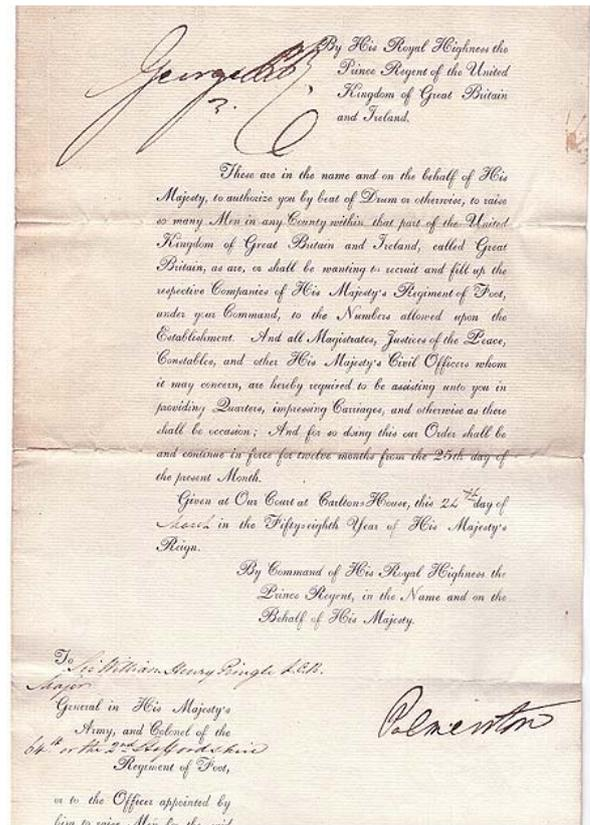 George P R
By His Royal Highness the
Prince Regent of the United
Kingdom of Great Britain
and Ireland,
These are in the name and on the behalf of His
Majesty, to authorize you by beat of Drum or otherwise, to raise
so many Men in any County within that part of the United
Kingdom of Great Britain and Ireland, called Great
Britain, as are, or shall be wanting to recruit and fill up the
respective Companies of His Majesty's Regiment of Foot,
under your Command, to the Numbers allowed upon the
Establishment. And all Magistrates, Justices of the Peace,
Constables, and other His Majesty's Civil Officers whom
it may concern, are hereby required to be assisting unto you in
providing Quarters, impressing Carriages, and otherwise as there
shall be occasion; And for so doing this our Order shall be
and continue in force for twelve months from the 25th day of
the present Month.
Given at Our Court at Carlton House, this 24th day of
March in the Fifty-eighth Year of His Majesty's
Reign.
By Command of His Royal Highness the
Prince Regent, in the Name and on the
Behalf of His Majesty.
To Sir William Henry Pringle K.C.B.
Major
General in His Majesty's
Army, and Colonel of the
64th or the 2nd Staffordshire
Regiment of Foot,
Palmerston
or to the Officer appointed by
him to raise Men for the said